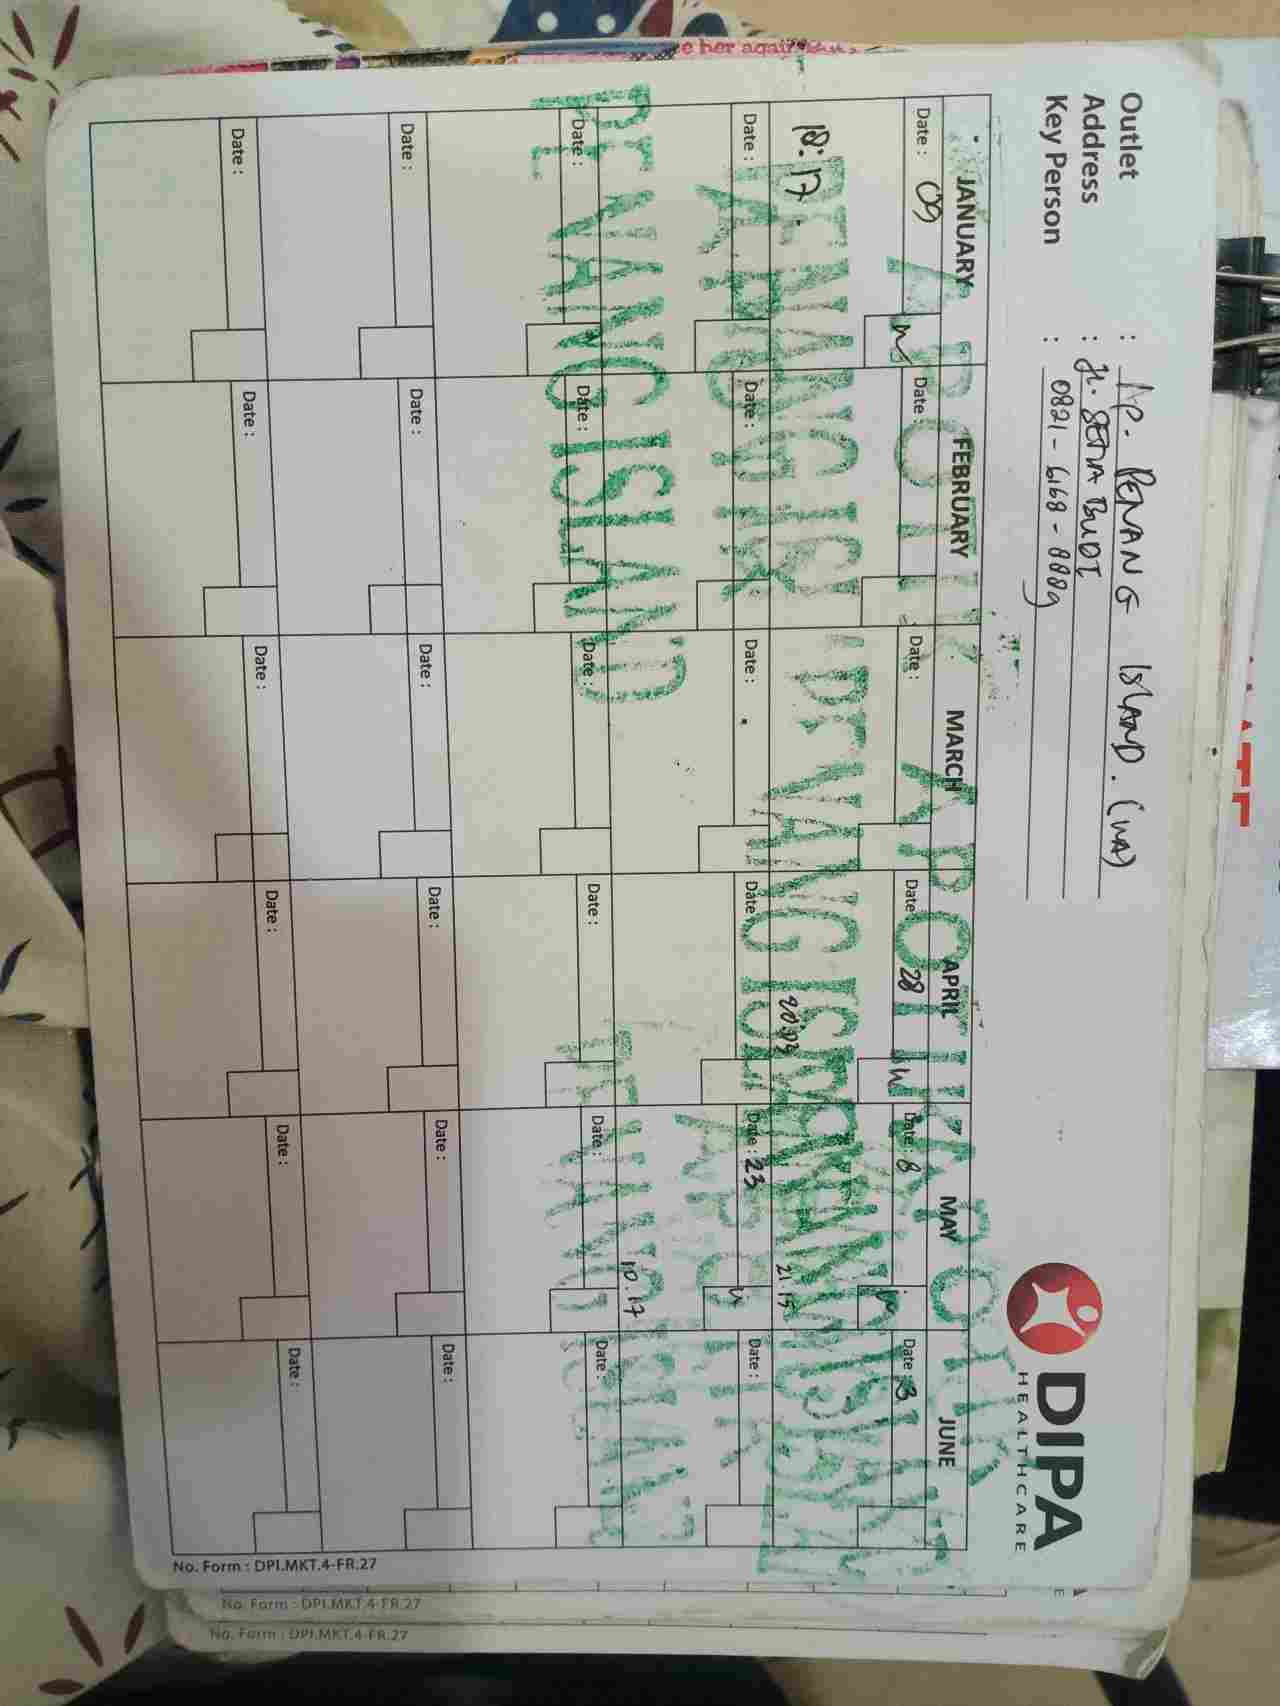 e her again
Outlet : AP. PENANG ISLAND. (WA)
Address : Jl. SETIA BUDI
Key Person : 0821-6168-8889
DIPA
HEALTHCARE
JANUARY FEBRUARY MARCH APRIL MAY JUNE
Date : 09 Date : Date : Date : 28 Date : 8 Date : 3
APOTIK APOTIKA APOTIK
18:17. 20:03 21:15
PENANG ISL PENANG ISLAND
Date : Date : Date : Date : Date : 23 Date :
APOTIK
10:17
PENANG ISLAND
Date : Date : Date : Date : Date : Date :
PENANG ISLAND
Date : Date : Date : Date : Date : Date :
Date : Date : Date : Date : Date : Date :
No. Form : DPI.MKT.4-FR.27
No. Form : DPI.MKT.4-FR.27
No. Form : DPI.MKT.4-FR.27